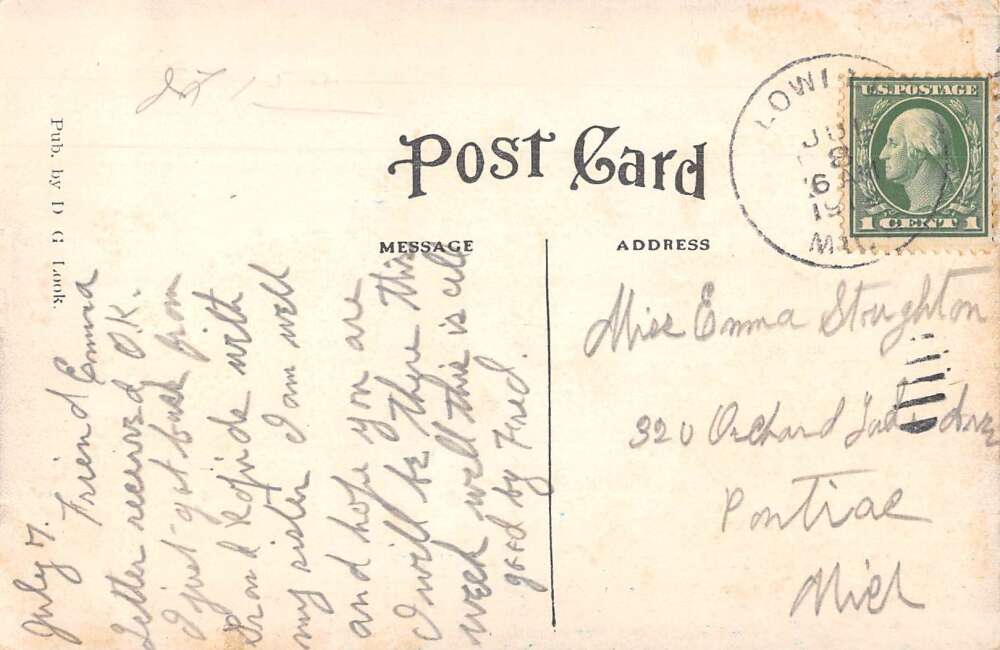 Post Card
MESSAGE
ADDRESS
Pub. by D G Look.
U.S. POSTAGE
1 CENT 1
8
6
19
July 7.
Friend Emma
Letter received O.K.
I just got back from
with
my sister I am well
and hope you are
I will be there this
week well this is all
good by Fred.
Miss Emma Stoughton
320 Orchard Ave
Pontiac
Mich